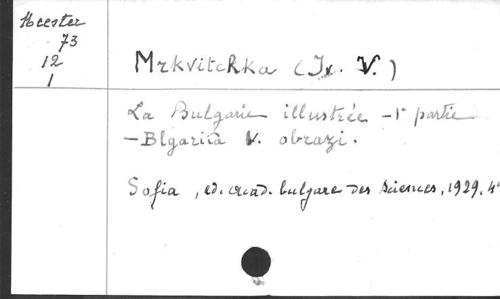 Heester
73
12
1
Mrkvitchka (Iv. V.)
La Bulgarie illustrée - 1e partie
- Blgariia v. obrazi.
Sofia, ed. acad. bulgare des sciences, 1929, 4°